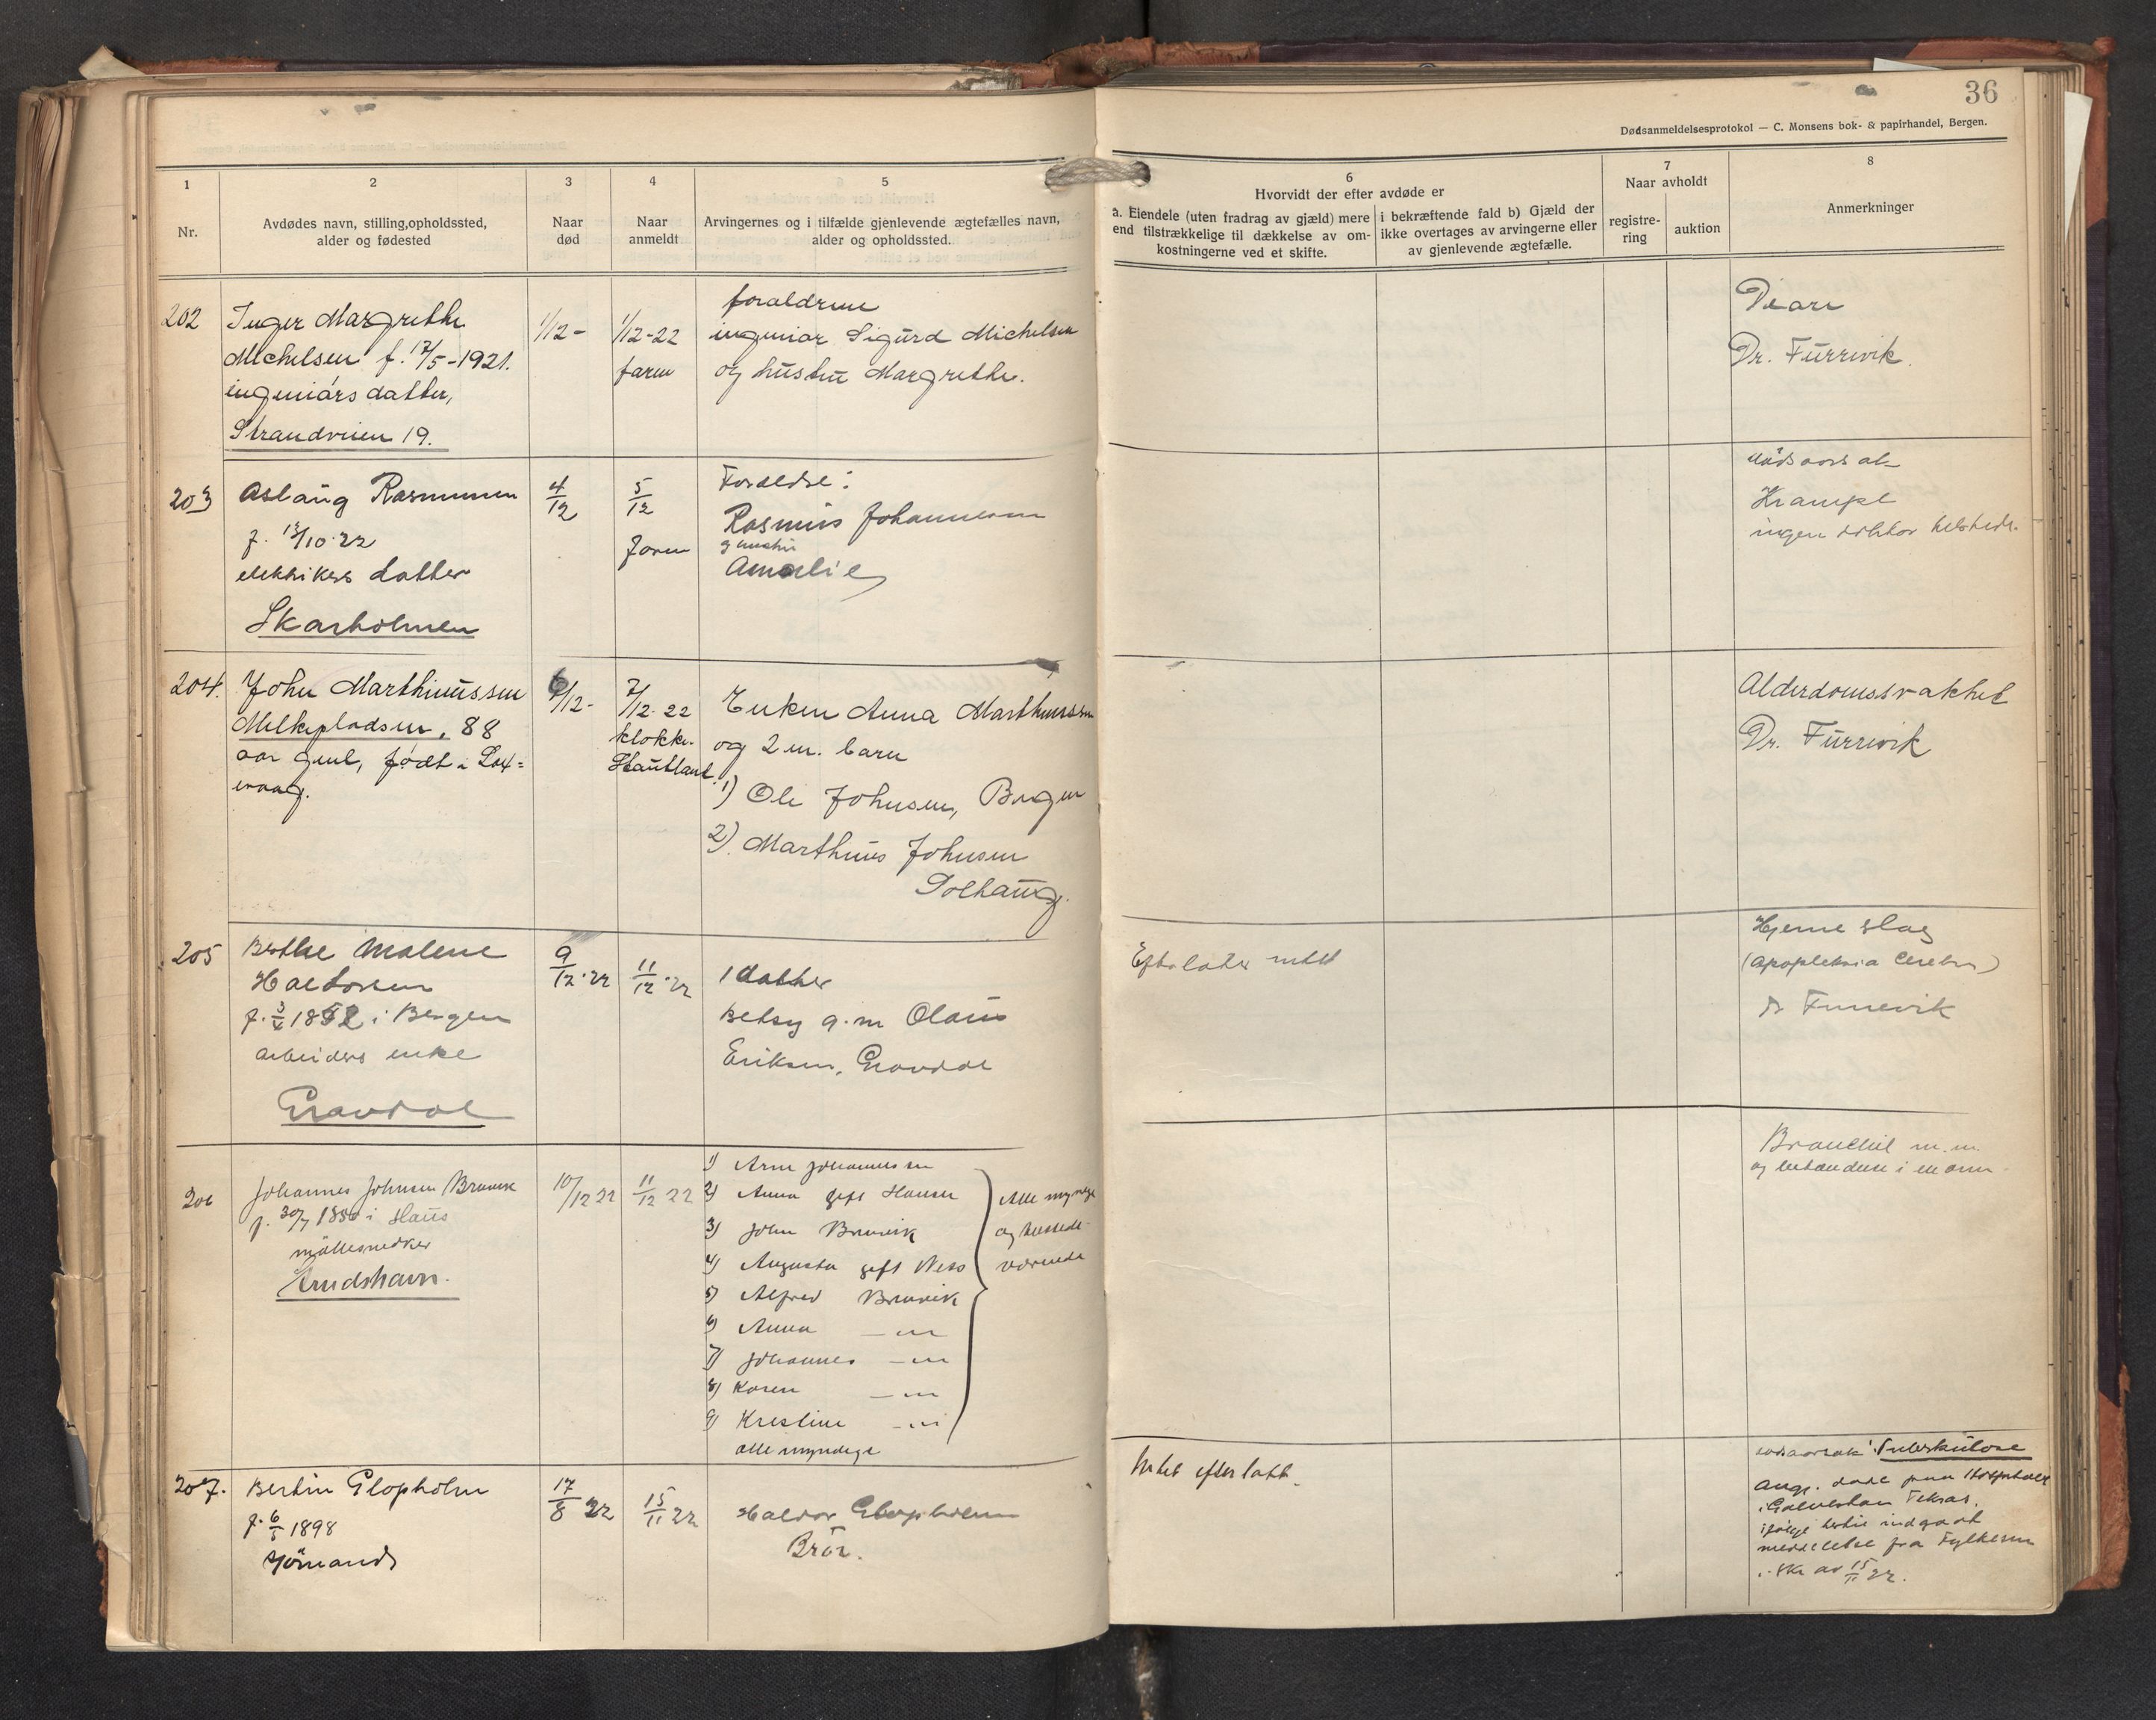 36
Dødsanmeldelsesprotokol — C. Monsens bok- & papirhandel, Bergen.
1
Nr.
2
Avdødes navn, stilling, opholdssted,
alder og fødested
3
Naar
død
4
Naar
anmeldt
5
Arvingernes og i tilfælde gjenlevende ægtefælles navn,
alder og opholdssted.
6
Hvorvidt der efter avdøde er
a. Eiendele (uten fradrag av gjæld) mere
end tilstrækkelige til dækkelse av om-
kostningerne ved et skifte.
i bekræftende fald b) Gjæld der
ikke overtages av arvingerne eller
av gjenlevende ægtefælle.
7
Naar avholdt
registre-
ring
auktion
8
Anmerkninger
202
Inger Margrethe
Michelsen f. 17/5-1921.
ingeniørs datter,
Strandveien 19.
1/12-
1/12-22
faren
foræaldrene
ingeniør Sigurd Michelsen
og hustru Margrethe.
Diare
Dr. Furrevik.
203
Aslaug Rasmussen
f. 13/10-22
elektrikers datter
Skarholmen
4/12
5/12
faren
Forældre:
Rasmus Johannesen
g hustru
Amalie
dødsaarsak
Krampe
ingen doktor
204.
John Marthinussen
Melkepladsen, 88
aar gml, født i Lax=
evaag.
6/12-
7/12-22
klokker
Enken Anna Marthinussen
og 2 m. barn
1) Ole Johnsen, Bergen
2). Marthinus Johnsen
Solhaug.
Alderdomssvakhet
Dr. Furrevik
205
Berthe Malene
Haldorsen
f. 1852 i Bergen
arbeiders enke
Gravdal
9/12-22
11/12-22
1 datter
Betsy g.m Olaus
Eriksen, Gravdal
Efterlater intet
Hjerneslag
(Apopleksia Cerebri)
Dr Furrevik
206
Johannes Johnsen Bruvik
f. 30/7 1850 i Haus
møllesnedker
10/12 22
11/12 22
1) Arne Johannessen
2) Anna gift Hansen
3) John Bruvik
4) Augusta gift Ness
5) Alfred Bruvik
6) Anna —"—
7) Johannes —"—
8) Karen —"—
9) Kristine —"—
alle myndige
Alle myndige
og tilstede-
værende
m.m.
207.
Bertin Glopholm
f. 6/5 1898
sjømand
17/8 22
15/11 22
Haldor Glopholm
Bror.
Intet efterlatt.
dødsaarsak: Tuberkulose
Ang. døde paa Hospitalet
i Galveston Teksas.
ifølge hertil indgaat
meddelelse fra Fylkesm
i skr av 15/11 22.